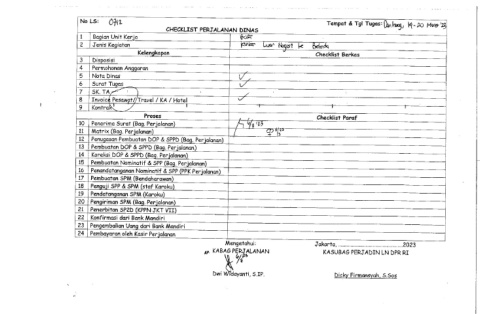 No LS: 0712
Tempat & Tgl Tugas: 14 - 20 Maret 23
CHECKLIST PERJALANAN DINAS
1 Bagian Unit Kerja
2 Jenis Kegiatan Luar Negeri ke Belanda
Kelengkapan Checklist Berkas
3 Disposisi
4 Permohonan Anggaran
5 Nota Dinas ✓
6 Surat Tugas ✓
7 SK. TA
8 Invoice Pesawat / Travel / KA / Hotel ✓
9 Kontrak
Proses Checklist Paraf
10 Penerima Surat (Bag. Perjalanan)
11 Matrix (Bag. Perjalanan)
12 Penugasan Pembuatan DOP & SPPD (Bag. Perjalanan)
13 Pembuatan DOP & SPPD (Bag. Perjalanan)
14 Koreksi DOP & SPPD (Bag. Perjalanan)
15 Pembuatan Nominatif & SPP (Bag. Perjalanan)
16 Penandatanganan Nominatif & SPP (PPK Perjalanan)
17 Pembuatan SPM (Bendaharawan)
18 Penguji SPP & SPM (staf Karoku)
19 Pendatanganan SPM (Karoku)
20 Pengiriman SPM (Bag. Perjalanan)
21 Penerbitan SP2D (KPPN JKT VII)
22 Konfirmasi dari Bank Mandiri
23 Pengembalian Uang dari Bank Mandiri
24 Pembayaran oleh Kasir Perjalanan
Mengetahui: Jakarta, 2023
KABAG PERJALANAN KASUBAG PERJADIN LN DPR RI
Dwi Widayanti, S.IP. Dicky Firmansyah, S.Sos